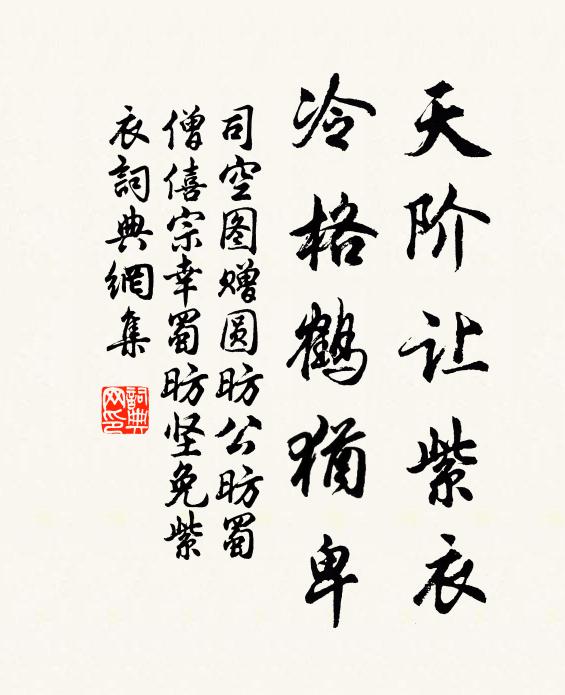 天阶让紫衣
冷格鹤犹卑
司空图赠圆昉公昉蜀
僧僖宗幸蜀昉坚免紫
衣词典網集
詞典
网印